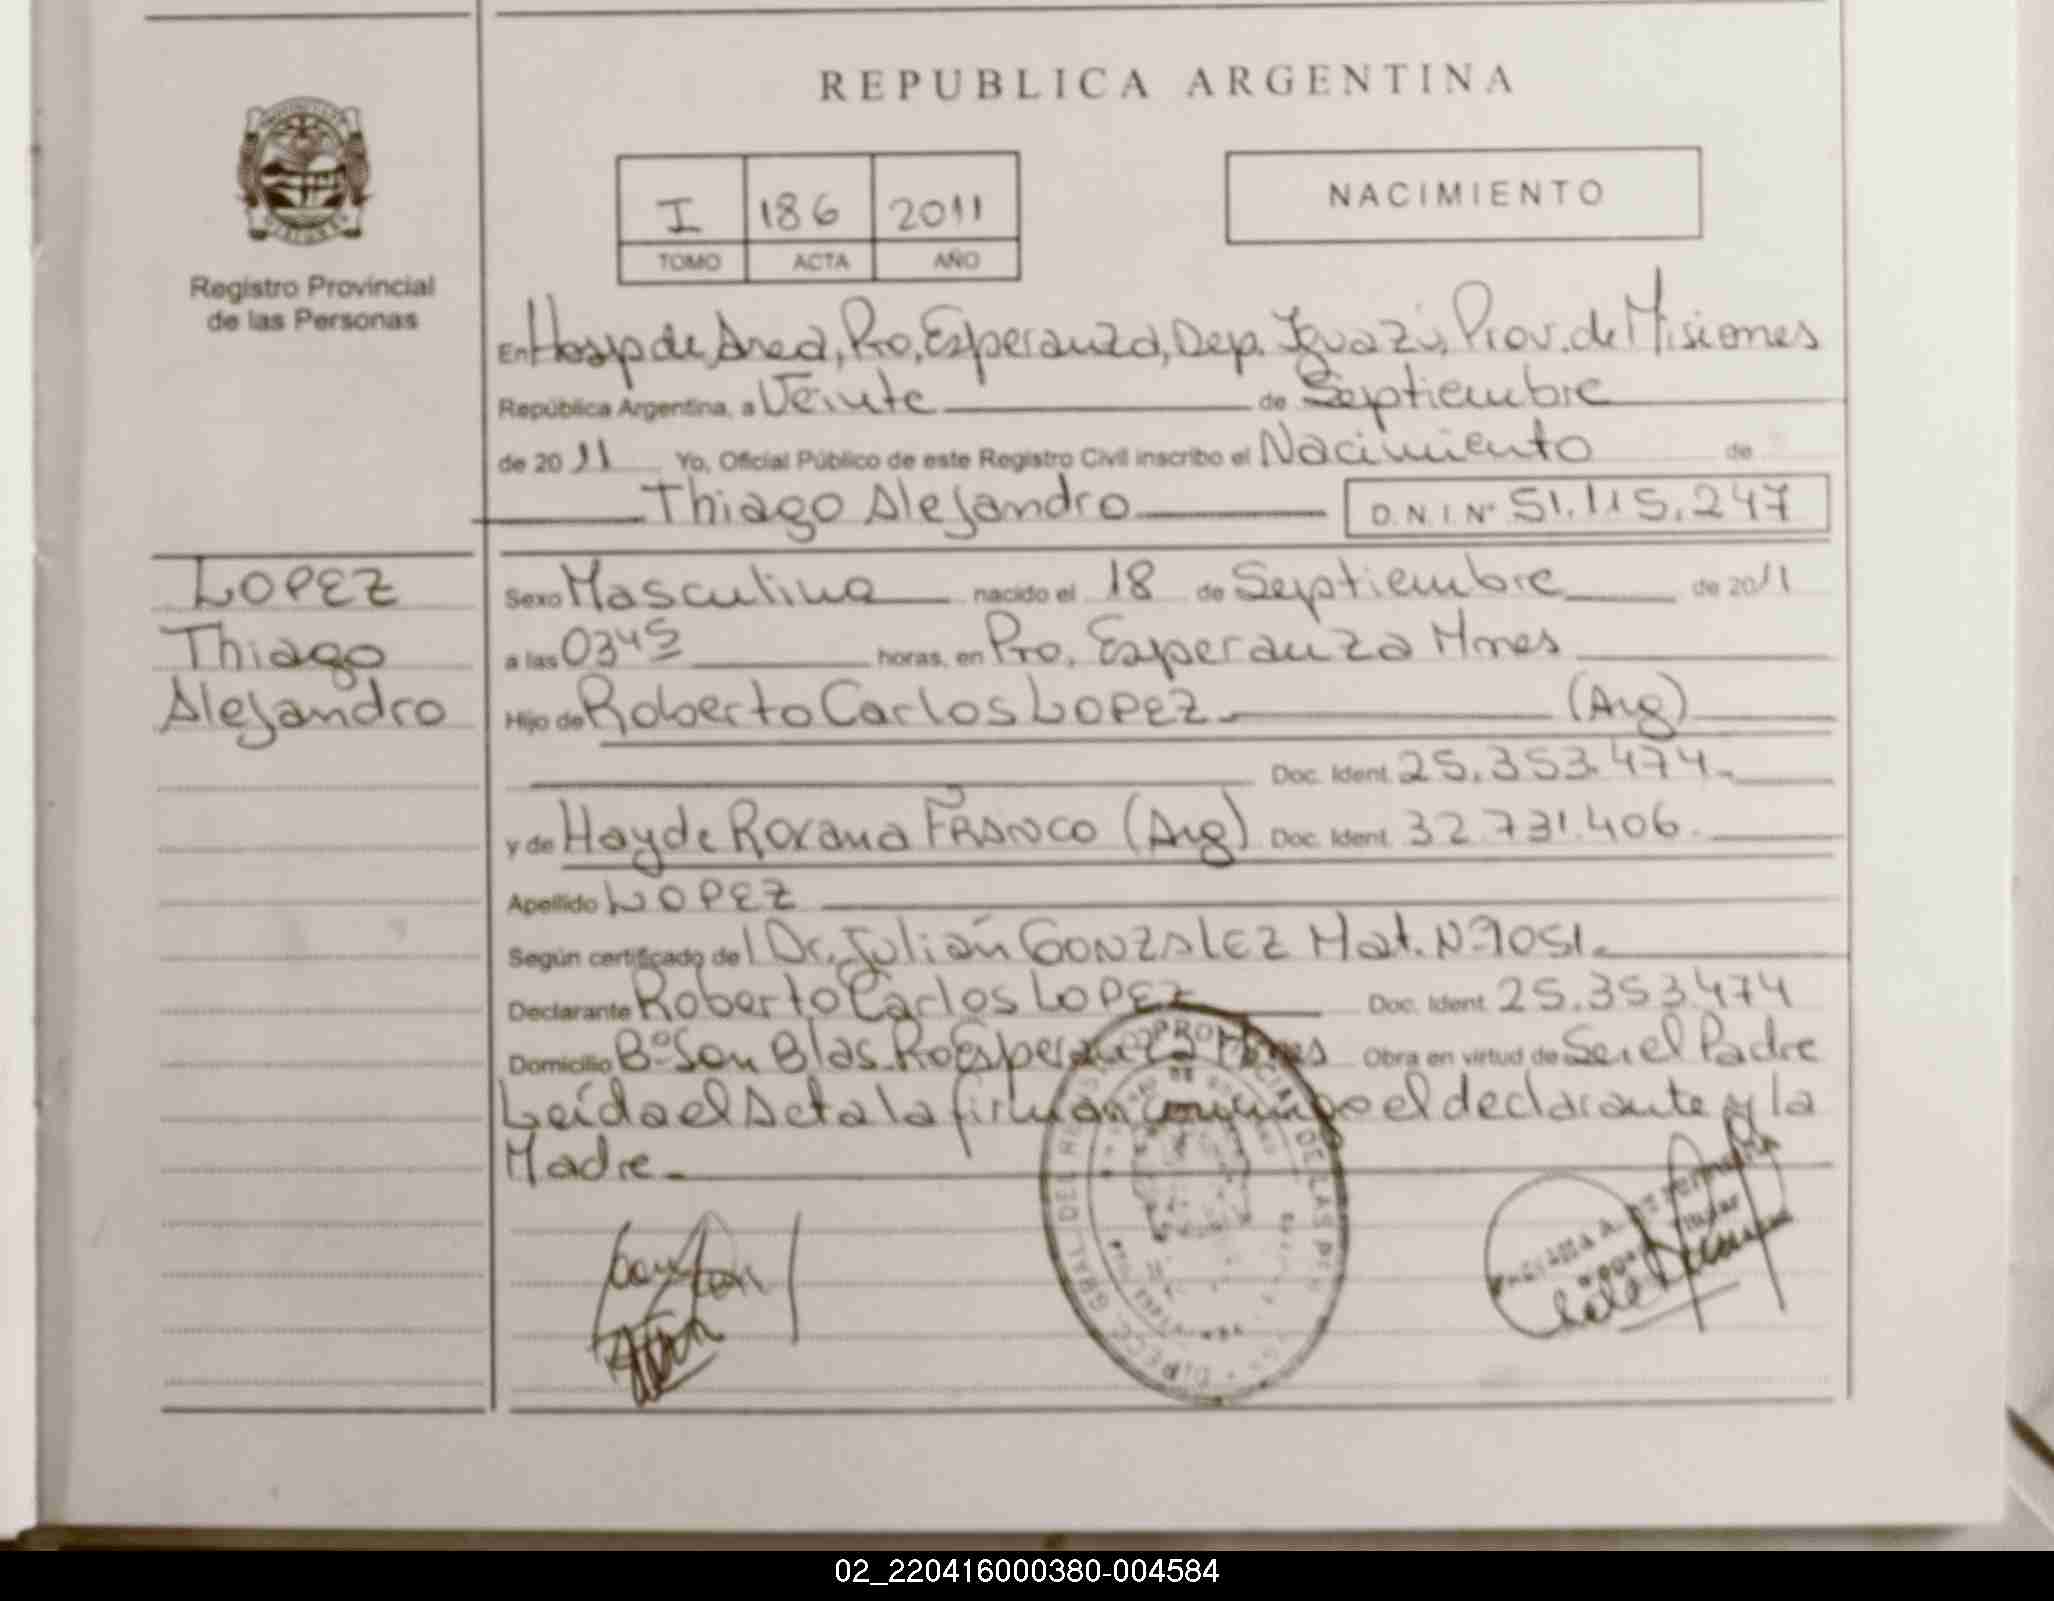 REPUBLICA ARGENTINA
I 186 2011
TOMO ACTA AÑO
NACIMIENTO
Registro Provincial
de las Personas
En Hosp de Area, Pto, Esperanza, Dep. Iguazú, Prov. de Misiones
República Argentina, a Veinte de Septiembre
de 2011 Yo, Oficial Público de este Registro Civil inscribo el Nacimiento de
Thiago Alejandro D.N.I. Nº 51.115.247
LOPEZ
Thiago
Alejandro
Sexo Masculino nacido el 18 de Septiembre de 2011
a las 0345 horas, en Pto. Esperanza Mnes
Hijo de Roberto Carlos LOPEZ (Arg)
Doc. Ident. 25.353.474.-
y de Hayde Roxana FRANCO (Arg) Doc. Ident. 32.731.406.
Apellido LOPEZ
Según certificado del Dr. Julián GONZALEZ Mat. Nº 1051.
Declarante Roberto Carlos LOPEZ Doc. Ident. 25.353.474
Domicilio Bº San Blas. Pto Esperanza Mnes Obra en virtud de Ser el Padre
Leída el Acta la firman conmigo el declarante y la
Madre.
02_220416000380-004584